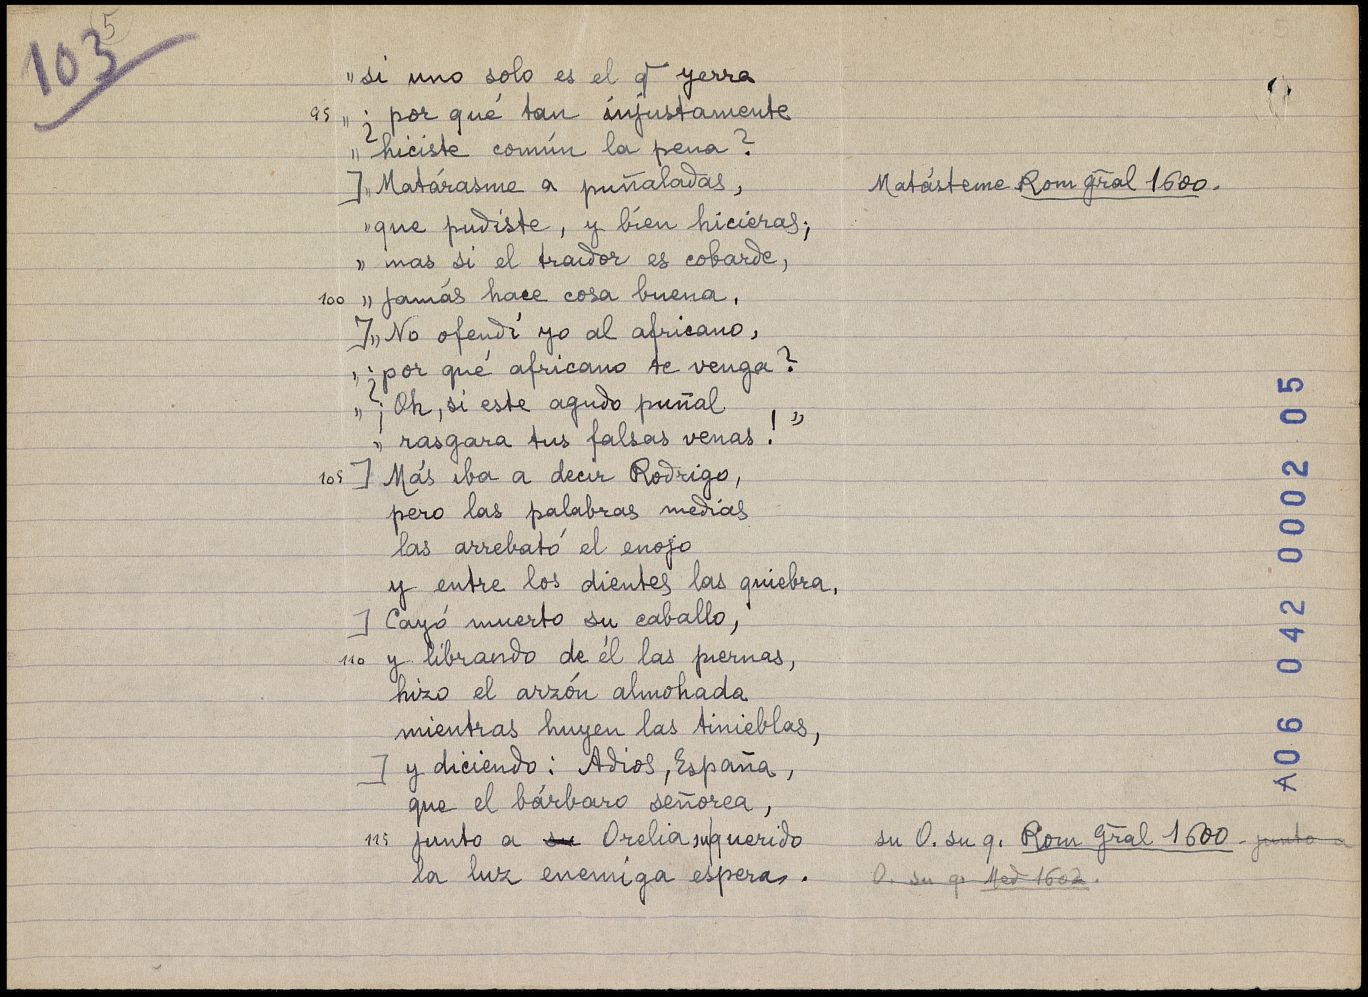 103
5
" si uno solo es el q̄ yerra
95 " ¿por qué tan injustamente
" hiciste común la pena?
] " Matárasme a puñaladas, Matásteme Rom gral 1600.
" que pudiste, y bien hicieras;
" mas si el traidor es cobarde,
100 " jamás hace cosa buena.
] " No ofendí yo al africano,
" ¿por qué africano te venga?
" ¡Oh, si este agudo puñal
" rasgara tus falsas venas!"
105 ] Más iba a decir Rodrigo,
pero las palabras medias
las arrebató el enojo
y entre los dientes las quiebra.
] Cayó muerto su caballo,
110 y librando de él las piernas,
hizo el arzón almohada
mientras huyen las tinieblas,
] y diciendo: Adios, España,
que el bárbaro señorea,
115 junto a su Orelia su querido su O. su q. Rom gral 1600 - junto a
la luz enemiga espera. O. su q. Med 1602.
A06 042 0002 05